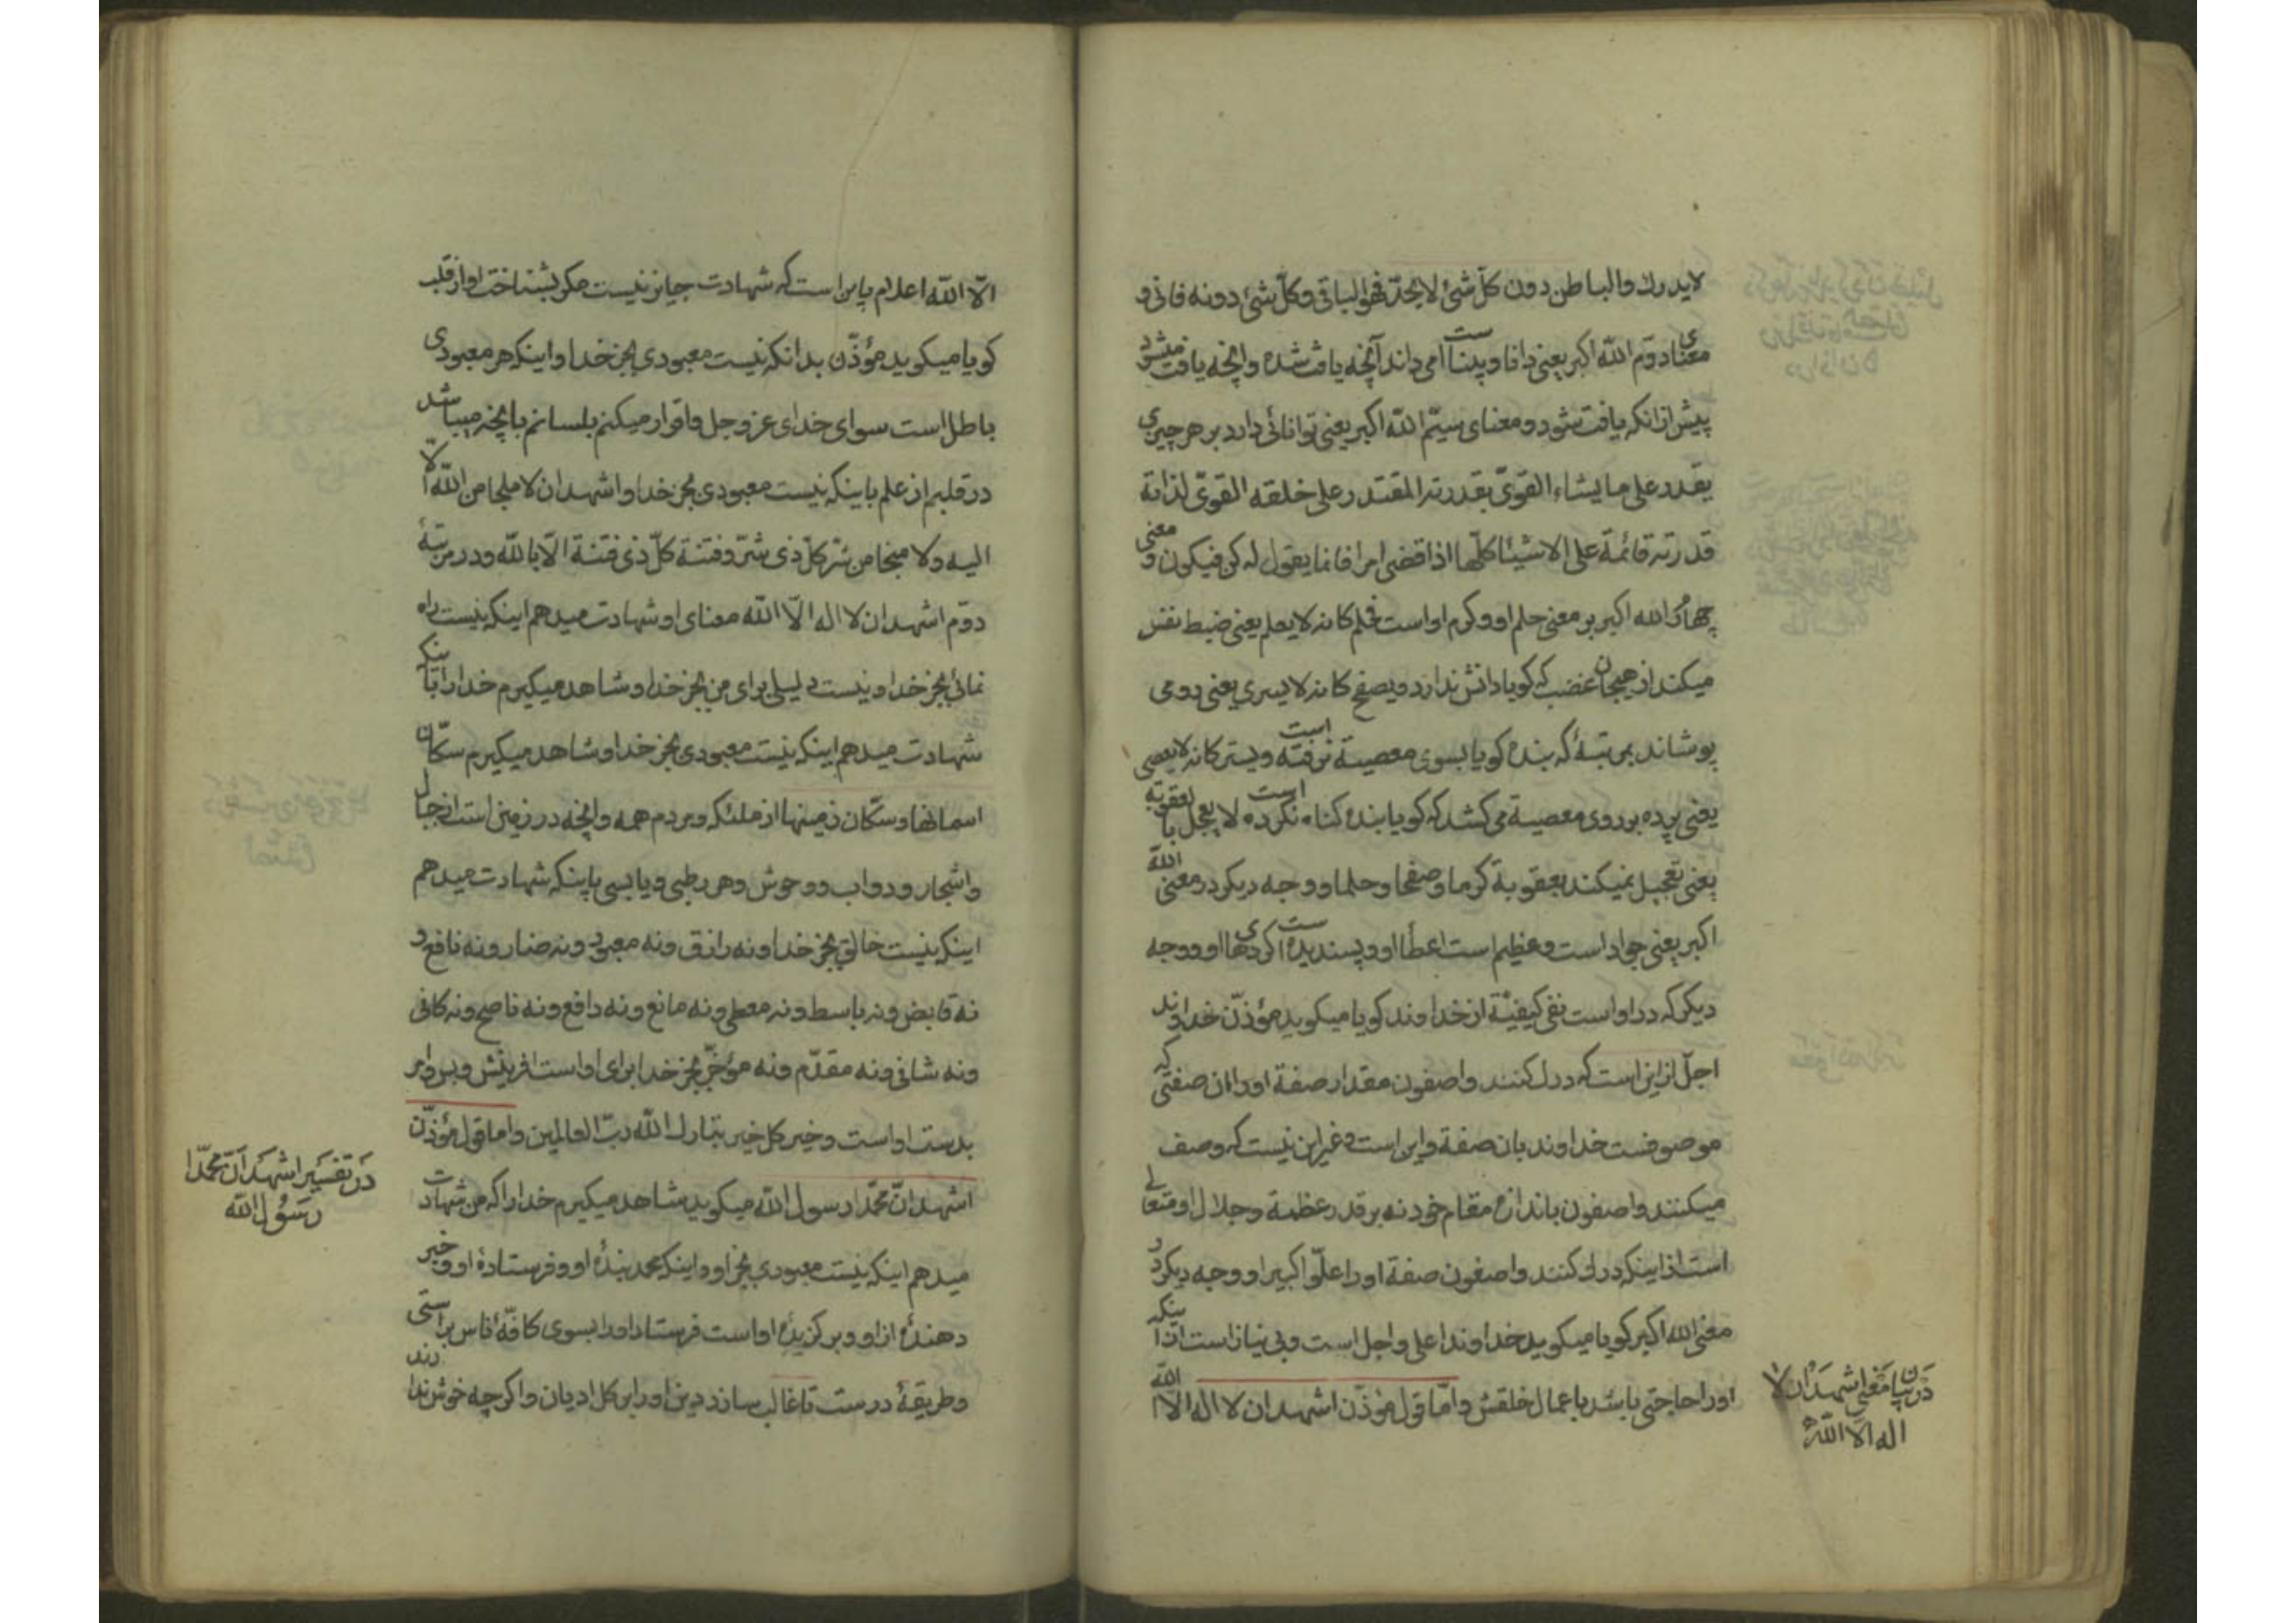 لایدرك والباطن دون كلّ شئ لایحدّ فهو الباقی وكلّ شئ دونه فانی و
معنای دوّم اللّه اكبر یعنی دانا و بیناست می داند آنچه یافت شده وانچه یافت میشود
پیش ازانكه یافت شود و معنای سیّم اللّه اكبر یعنی توانائی دارد بر هر چیزی
یقدر علی ما یشاء القویّ بقدرته المقتدر علی خلقه القویّ لذاته
قدرته قائمة علی الاشیئا كلّها اذا قضی امرا فانما یقول له كن فیكون و معنی
چهارُ اللّه اكبر بر معنی حلم او وكرم اواست فحلم كانه لایعلم یعنی ضبط نفس
میكند از هیجان غضب كه كویا دانش ندارد ویصفح كانه لایسری یعنی رو می
پوشاند بمرتبۀ كه بنده كویا بسوی معصیة نرفته است ویستر كانه لایعصی
یعنی پرده بر روی معصیة می كشد كه كویا بنده كناه نكرده است لا یعجل بالعقوبة
یعنی تعجیل نمیكند بعقوبة كرما وصفحا وحلما و وجه دیكر در معنی اللّه
اكبر یعنی جواد است وعظیم است اعطأ او و پسندیده است كردهای او ووجه
دیكر كه در اواست نفی كیفیّة از خداوند كویا میكوید مؤذّن خداوند
اجلّ از این است كه درك كنند واصفون مقدار صفة اورا ان صفتی كه
موصوفست خداوند بان صفة واین است وغیر این نیست كه وصف
میكنند واصفون باندازه مقام خود نه بر قدر عظمة وجلال او متعالی
است از اینكه درك كنند واصفون صفة اورا علوّا كبیرا و وجه دیكر در
معنی اللّه اكبر كویا میكوید خداوند اعلی واجل است وبی نیاز است از اینكه
اورا حاجتی باشد باعمال خلقش وامّا قول مؤذّن اشهد ان لا اله الا اللّه
در بیان معنی اشهد ان لا
اله الّا اللّه
الّا اللّه اعلام باین است كه شهادت جایز نیست مكر بشناخت او از قلب
كویا میكوید مؤذّن بدانكه نیست معبودی بجز خدا و اینكه هر معبودی
باطل است سوای خدای عز وجل واقرار میكنم بلسانم بانچه میباشد
در قلبم از علم باینكه نیست معبودی بجز خدا واشهد ان لا ملجا من اللّه الّا
الیه ولا منجا من شرّ كلّ ذی شرّ وفتنة كلّ ذی فتنة الّا باللّه ودر مرتبۀ
دوّم اشهد ان لا اله الّا اللّه معنای او شهادت میدهم اینكه نیست راه
نمائی بجز خدا ونیست دلیلی برای من بجز خدا وشاهد میكیرم خدا را باینكه
شهادت میدهم اینكه نیست معبودی بجز خدا وشاهد میكیرم سكّان
اسمانها وسكّان زمینها از ملئكه ومردم همه وانچه در زمین است از جبال
واشجار ودواب ووحوش وهر رطبی ویابسی باینكه شهادت میدهم
اینكه نیست خالقی بجز خدا ونه رازق ونه معبود ونه ضار ونه نافع و
نه قابض ونه باسط ونه معطی ونه مانع ونه دافع ونه ناصح ونه كافی
ونه شافی ونه مقدّم ونه مؤخّر بجز خدا برای اواست افرینش وبس وامر
بدست اواست وخیر كل خیر تبارك اللّه ربّ العالمین واما قول مؤذّن
اشهد انّ محمّدا رسول اللّه میكوید شاهد میكیرم خدا را كه من شهادت
میدهم اینكه نیست معبودی بجز او واینكه محمد بندۀ او وفرستادۀ او وخبر
دهندۀ از او وبركزیدۀ اواست فرستاد اورا بسوی كافّۀ ناس براستی
وطریقۀ درست تا غالب سازد دین اورا بر كل ادیان واكرچه خوش ندارند
در تفسیر اشهد انّ محمّدا
رسول اللّه